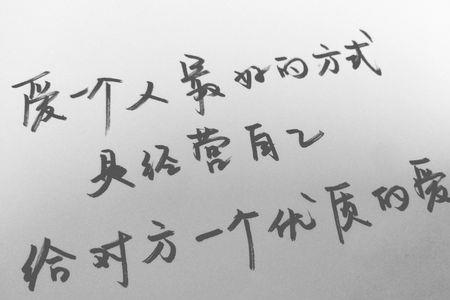 爱一个人最好的方式
是经营自己
给对方一个优质的爱